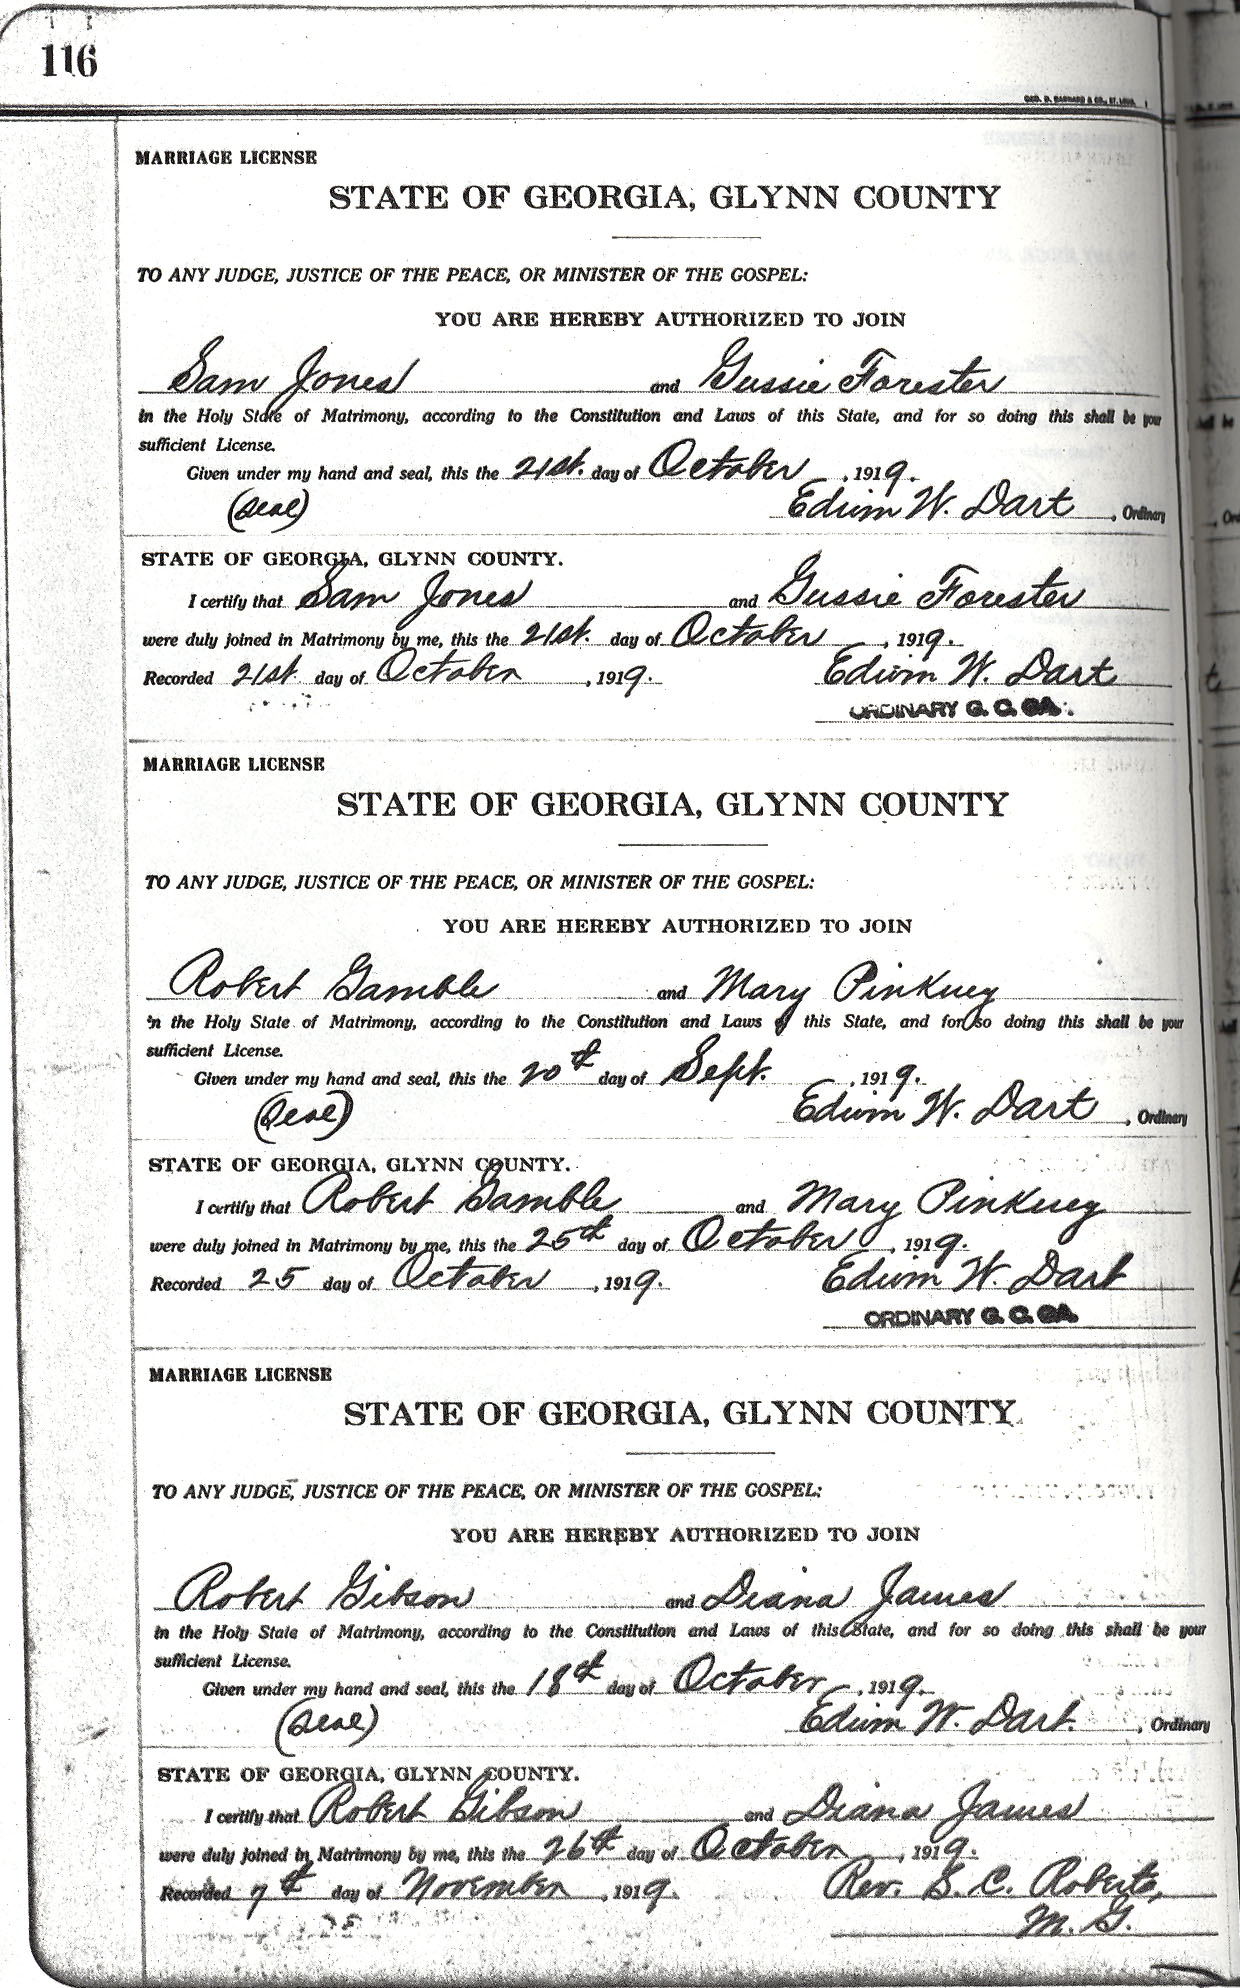 116
GEO. D. BARNARD & CO., ST. LOUIS
MARRIAGE LICENSE
STATE OF GEORGIA, GLYNN COUNTY
TO ANY JUDGE, JUSTICE OF THE PEACE, OR MINISTER OF THE GOSPEL:
YOU ARE HEREBY AUTHORIZED TO JOIN
Sam Jones and Gussie Forester
in the Holy State of Matrimony, according to the Constitution and Laws of this State, and for so doing this shall be your
sufficient License.
Given under my hand and seal, this the 21st. day of October, 1919.
(Seal) Edwin W. Dart, Ordinary
STATE OF GEORGIA, GLYNN COUNTY.
I certify that Sam Jones and Gussie Forester
were duly joined in Matrimony by me, this the 21st. day of October, 1919.
Recorded 21st. day of October, 1919. Edwin W. Dart
ORDINARY G. C. GA.
MARRIAGE LICENSE
STATE OF GEORGIA, GLYNN COUNTY
TO ANY JUDGE, JUSTICE OF THE PEACE, OR MINISTER OF THE GOSPEL:
YOU ARE HEREBY AUTHORIZED TO JOIN
Robert Gamble and Mary Pinkney
in the Holy State of Matrimony, according to the Constitution and Laws of this State, and for so doing this shall be your
sufficient License.
Given under my hand and seal, this the 20th day of Sept., 1919.
(Seal) Edwin W. Dart, Ordinary
STATE OF GEORGIA, GLYNN COUNTY.
I certify that Robert Gamble and Mary Pinkney
were duly joined in Matrimony by me, this the 25th day of October, 1919.
Recorded 25 day of October, 1919. Edwin W. Dart
ORDINARY G. C. GA.
MARRIAGE LICENSE
STATE OF GEORGIA, GLYNN COUNTY.
TO ANY JUDGE, JUSTICE OF THE PEACE, OR MINISTER OF THE GOSPEL:
YOU ARE HEREBY AUTHORIZED TO JOIN
Robert Gibson and Diana James
in the Holy State of Matrimony, according to the Constitution and Laws of this State, and for so doing this shall be your
sufficient License.
Given under my hand and seal, this the 18th day of October, 1919.
(Seal) Edwin W. Dart., Ordinary
STATE OF GEORGIA, GLYNN COUNTY.
I certify that Robert Gibson and Diana James
were duly joined in Matrimony by me, this the 26th day of October, 1919.
Recorded 7th day of November, 1919. Rev. S. C. Roberts,
M. G.